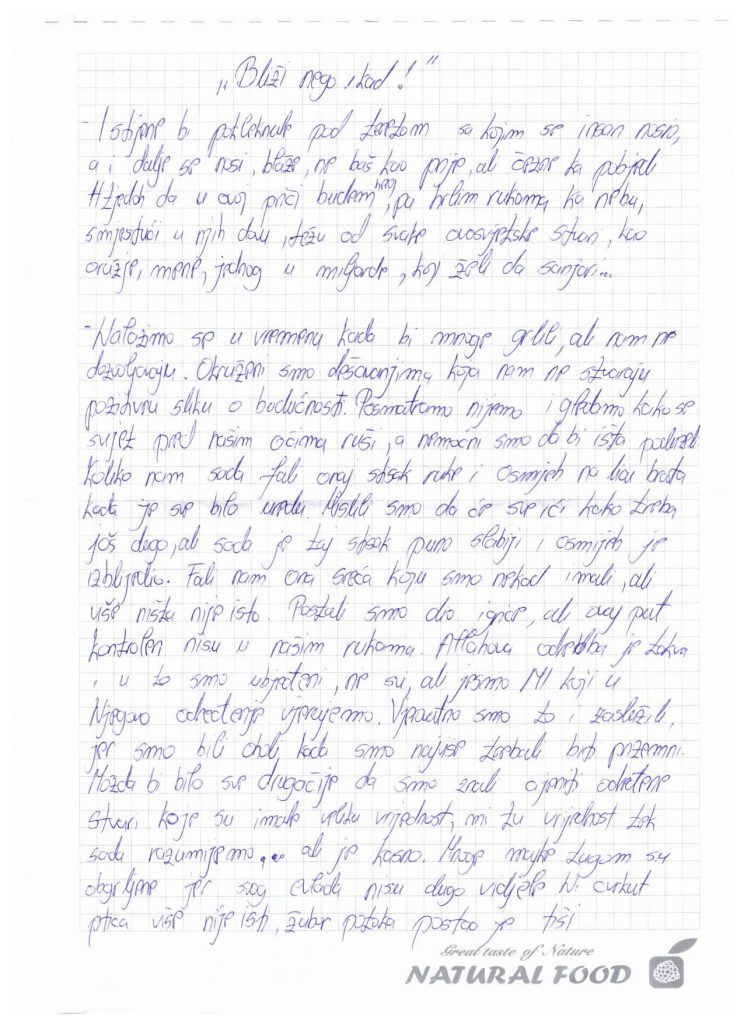 „Bliži nego ikad!“
- I stijene bi pokleknule pod teretom sa kojim se insan nosio,
a i dalje se nosi, blaže, ne baš kao prije, ali čezne ka pobjedi
Htjedoh da u ovoj priči budem heroj, pa hrlim rukama ka nebu,
smjestivši u njih dovu, težu od svake ovosvjetske stvari, kao
oružje, mene, jednog u milijarde, koji želi da sanjari...
- Nalazimo se u vremenu kada bi mnoge grlili, ali nam ne
dozvoljavaju. Okruženi smo dešavanjima koja nam ne stvaraju
pozitivnu sliku o budućnosti. Posmatramo nijemo i gledamo kako se
svijet pred našim očima ruši, a nemoćni smo da bi išta poduzeli
Koliko nam sada fali onaj stisak ruke i osmijeh na licu brata
kada je sve bilo uredu Mislili smo da će sve ići kako treba
još dugo, ali sada je taj stisak puno slabiji i osmijeh je
izblijedio. Fali nam ona sreća koju smo nekad imali, ali
više ništa nije isto. Postali smo dio igrice, ali ovaj put
kontroleri nisu u našim rukama. Allahova odredba je takva
i u to smo ubjeđeni, ne svi, ali jesmo MI koji u
Njegovo određenje vjerujemo. Vjerovatno smo to i zaslužili,
jer smo bili oholi kada smo najviše trebali biti prizemni.
Možda bi bilo sve drugačije da smo znali cijeniti određene
stvari koje su imale veliku vrijednost, mi tu vrijednost tek
sada razumijemo... ali je kasno. Mnoge majke tugom su
obgrljene jer svog evlada nisu dugo vidjele Ni cvrkut
ptica više nije isti, žubor potoka postao je tiši
Great taste of Nature
NATURAL FOOD